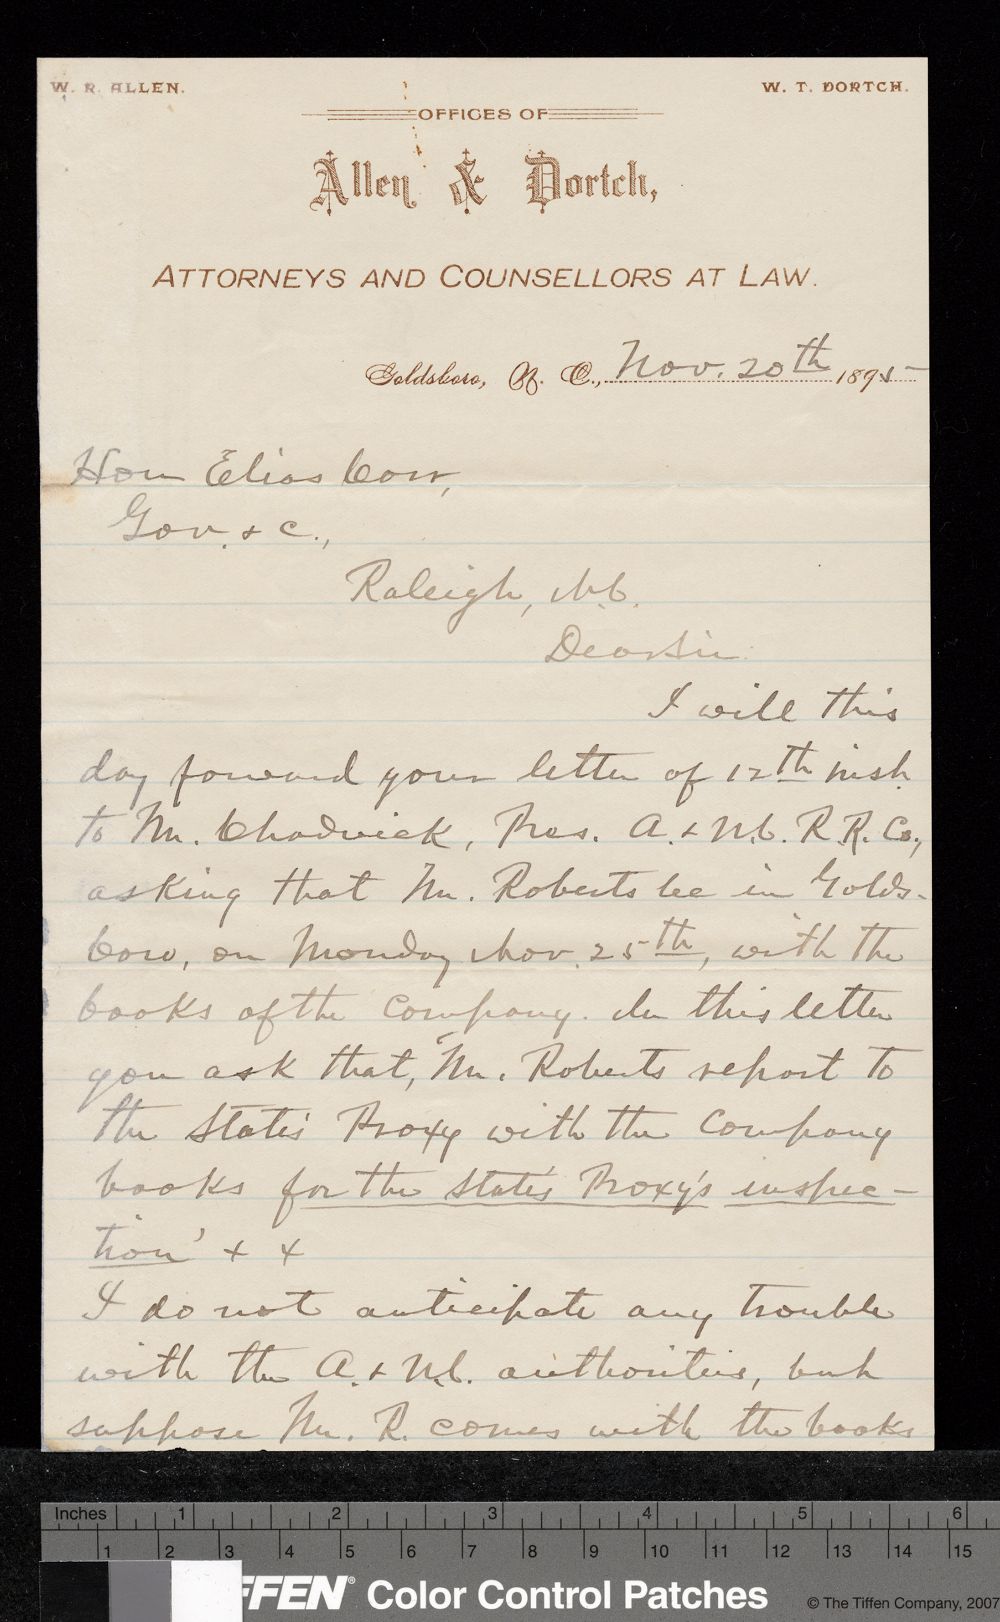 W. R. ALLEN. W. T. DORTCH.
OFFICES OF
Allen & Dortch,
ATTORNEYS AND COUNSELLORS AT LAW.
Goldsboro, N. C., Nov. 20th 1895
Hon Elias Carr,
Gov. & c.,
Raleigh, N.C.
Dear Sir
I will this
day forward your letter of 12th inst.
to Mr. Chadwick, Pres. A. & N.C. R.R. Co.,
asking that Mr. Roberts be in Golds-
boro, on Monday Nov. 25th, with the
books of the Company. In this letter
you ask that, "Mr. Roberts report to
the State's Proxy with the Company
books for the State's Proxy's inspec-
tion' x x
I do not anticipate any trouble
with the A. & N.C. authorities, but
suppose Mr. R. comes with the books
Inches 1 2 3 4 5 6
1 2 3 4 5 6 7 8 9 10 11 12 13 14 15
FFEN® Color Control Patches © The Tiffen Company, 2007